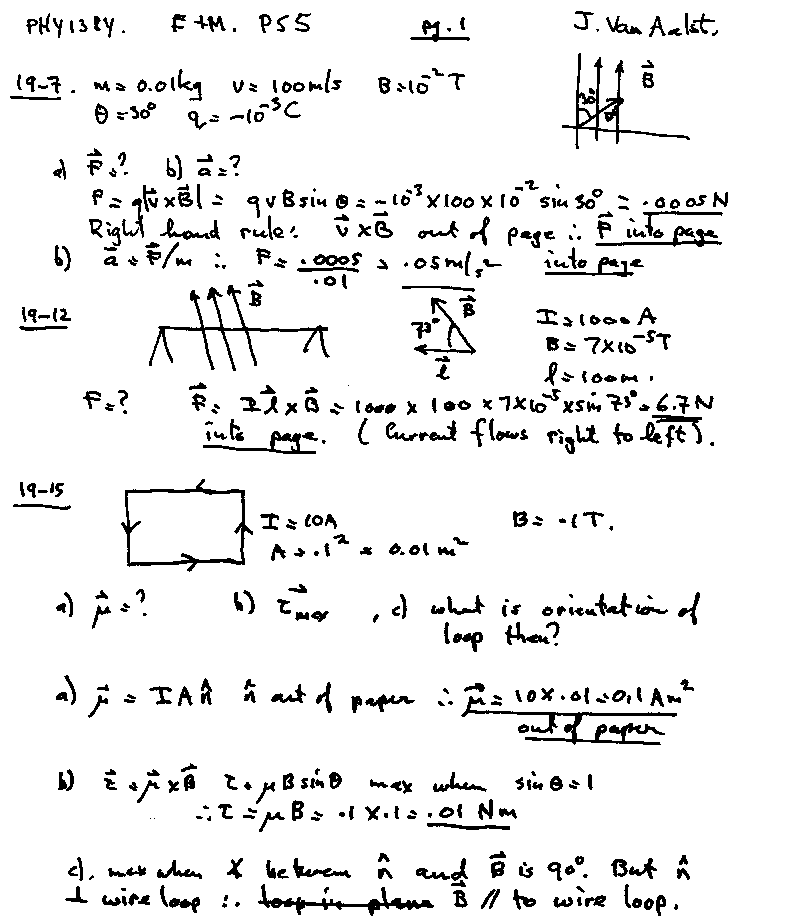 PHY138Y. E+M. PS5 pg. 1 J. Van Aalst.
19-7. m = 0.01kg v = 100m/s B = 10⁻² T
θ = 30° q = -10⁻³ C
30° B⃗
a) F⃗ = ? b) a⃗ = ?
F = q|v⃗ × B⃗| = qvB sin θ = -10⁻³ × 100 × 10⁻² sin 30° = .0005 N
Right hand rule: v⃗ × B⃗ out of page ∴ F⃗ into page
b) a⃗ = F⃗/m ∴ F = .0005/.01 = .05 m/s² into page
19-12 B⃗ 73° B⃗ l⃗ I = 1000 A
B = 7×10⁻⁵ T
l = 100m.
F = ? F⃗ = I l⃗ × B⃗ = 1000 × 100 × 7×10⁻⁵ × sin 73° = 6.7 N
into page. (Current flows right to left).
19-15 I = 10A B = .1 T.
A = .1² = 0.01 m²
a) μ⃗ = ? b) τ⃗max , c) what is orientation of
loop then?
a) μ⃗ = I A n̂ n̂ out of paper ∴ μ⃗ = 10 × .01 = 0.1 Am²
out of paper
b) τ⃗ = μ⃗ × B⃗ τ = μB sin θ max when sin θ = 1
∴ τ = μB = .1 × .1 = .01 Nm
c). max when ∡ between n̂ and B⃗ is 90°. But n̂
⊥ wire loop ∴ loop in plane B⃗ // to wire loop.